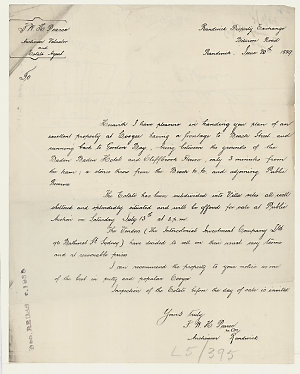 J. W. H. Pearce
Auctioneer Valuator
and
Estate Agent
Randwick Property Exchange
Belmore Road
Randwick, June 28th 1889
To
I have pleasure in handing you plan of an
excellent property at Coogee having a frontage to Beach Street and
running back to Gordon Bay, being between the grounds of the
Baden Baden Hotel and Cliffbrook House, only 3 minutes from
the tram; a stones throw from the Beach &c. &c. and adjoining Public
Reserve
The Estate has been subdivided into Villa sites all well
shelved and splendidly situated and will be offered for sale at Public
Auction on Saturday July 13th at 3 p.m.
The Vendors (The Intercolonial Investment Company Ltd
of Bathurst St Sydney) have decided to sell on their usual easy terms
and at reasonable prices
I can recommend the property to your notice as one
of the best in pretty and popular Coogee
Inspection of the Estate before the day of sale is invited
Yours truly,
J. W. H. Pearce
Auctioneer
Randwick
L5/395